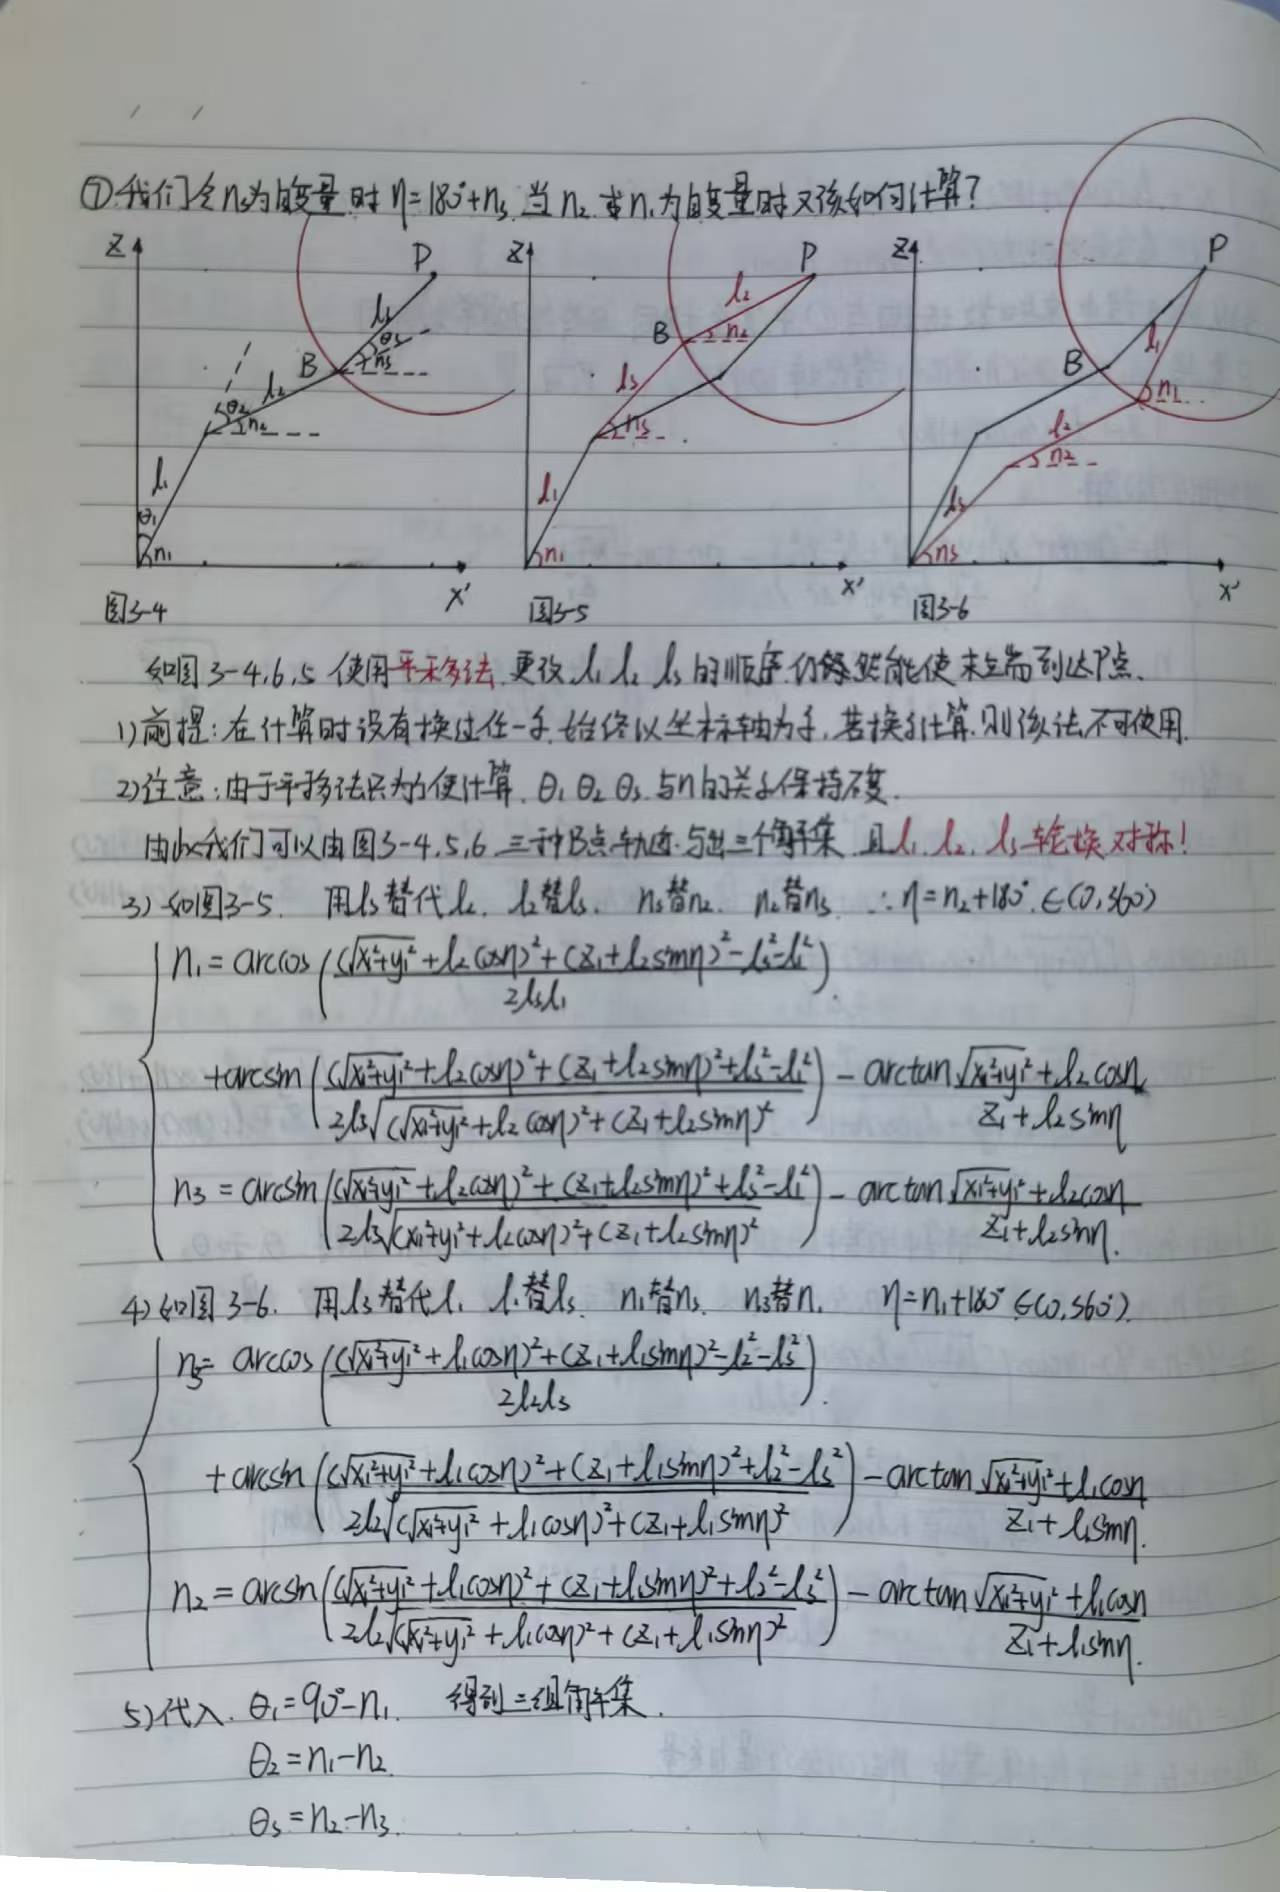 ⑦ 我们令n₃为自变量时 η=180°+n₃. 当n₂ 或n₁为自变量时又该如何计算?
Z P l₃ θ₃ n₃ B l₂ θ₂ n₂ l₁ θ₁ n₁ X'
Z P l₂ n₂ B l₃ n₃ l₁ n₁ X'
Z P l₁ n₁ B l₂ n₂ l₃ n₃ X'
图3-4 图3-5 图3-6
如图3-4,6,5 使用平移法, 更改l₁ l₂ l₃的顺序,仍然能使末端到达P点.
1)前提:在计算时没有换过任一系,始终以坐标轴为系,若换系计算,则该法不可使用.
2)注意:由于平移法只为方便计算, θ₁ θ₂ θ₃ 与n的关系保持不变.
由此我们可以由图3-4,5,6 三种B点轨迹写出三个解集 且l₁, l₂, l₃轮换对称!
3) 如图3-5. 用l₃替代l₂, l₂替l₃, n₃替n₂, n₂替n₃ ∴η=n₂+180° ∈(0,360°)
n₁ = arccos((（√(x₁²+y₁²)+l₂cosη)²+(z₁+l₂sinη)²-l₃²-l₁²)/(2l₃l₁))
+arcsin(((√(x₁²+y₁²)+l₂cosη)²+(z₁+l₂sinη)²+l₃²-l₁²)/(2l₃√((√(x₁²+y₁²)+l₂cosη)²+(z₁+l₂sinη)²)) - arctan (√(x₁²+y₁²)+l₂cosη)/(z₁+l₂sinη)
n₃ = arcsin(((√(x₁²+y₁²)+l₂cosη)²+(z₁+l₂sinη)²+l₃²-l₁²)/(2l₃√((√(x₁²+y₁²)+l₂cosη)²+(z₁+l₂sinη)²)) - arctan (√(x₁²+y₁²)+l₂cosη)/(z₁+l₂sinη).
4) 如图3-6. 用l₃替代l₁ l₁替l₃. n₁替n₃. n₃替n₁ η=n₁+180° ∈(0,360°).
n₃= arccos(((√(x₁²+y₁²)+l₁cosη)²+(z₁+l₁sinη)²-l₂²-l₃²)/(2l₂l₃)).
+arcsin(((√(x₁²+y₁²)+l₁cosη)²+(z₁+l₁sinη)²+l₂²-l₃²)/(2l₂√((√(x₁²+y₁²)+l₁cosη)²+(z₁+l₁sinη)²)) - arctan (√(x₁²+y₁²)+l₁cosη)/(z₁+l₁sinη).
n₂ = arcsin(((√(x₁²+y₁²)+l₁cosη)²+(z₁+l₁sinη)²+l₂²-l₃²)/(2l₂√((√(x₁²+y₁²)+l₁cosη)²+(z₁+l₁sinη)²)) - arctan (√(x₁²+y₁²)+l₁cosη)/(z₁+l₁sinη).
5)代入. θ₁=90°-n₁. 得到三组解集.
θ₂=n₁-n₂.
θ₃=n₂-n₃.